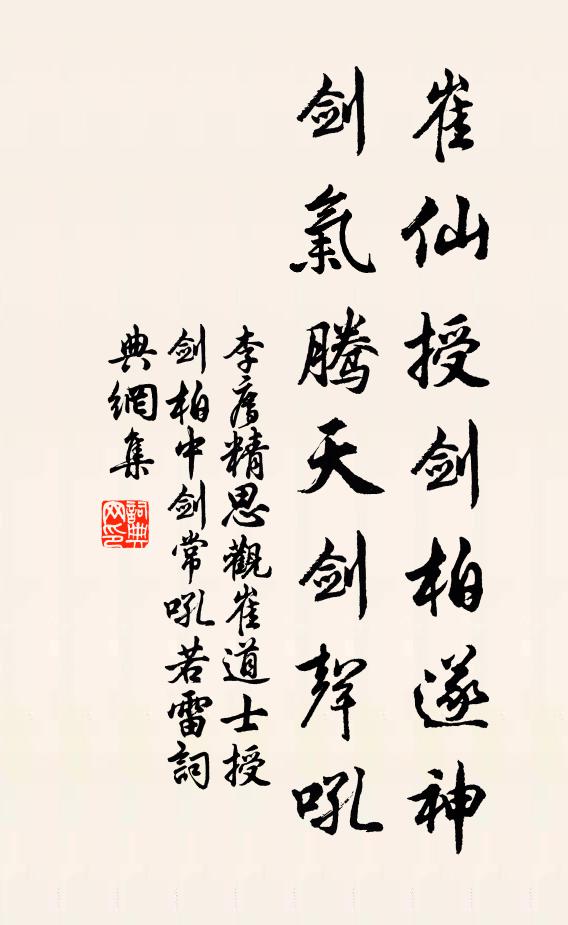 崔仙授剑柏遂神
剑氣騰天剑聲吼
李廌精思觀崔道士授
剑柏中剑常吼若雷詞
典網集
詞典
网印